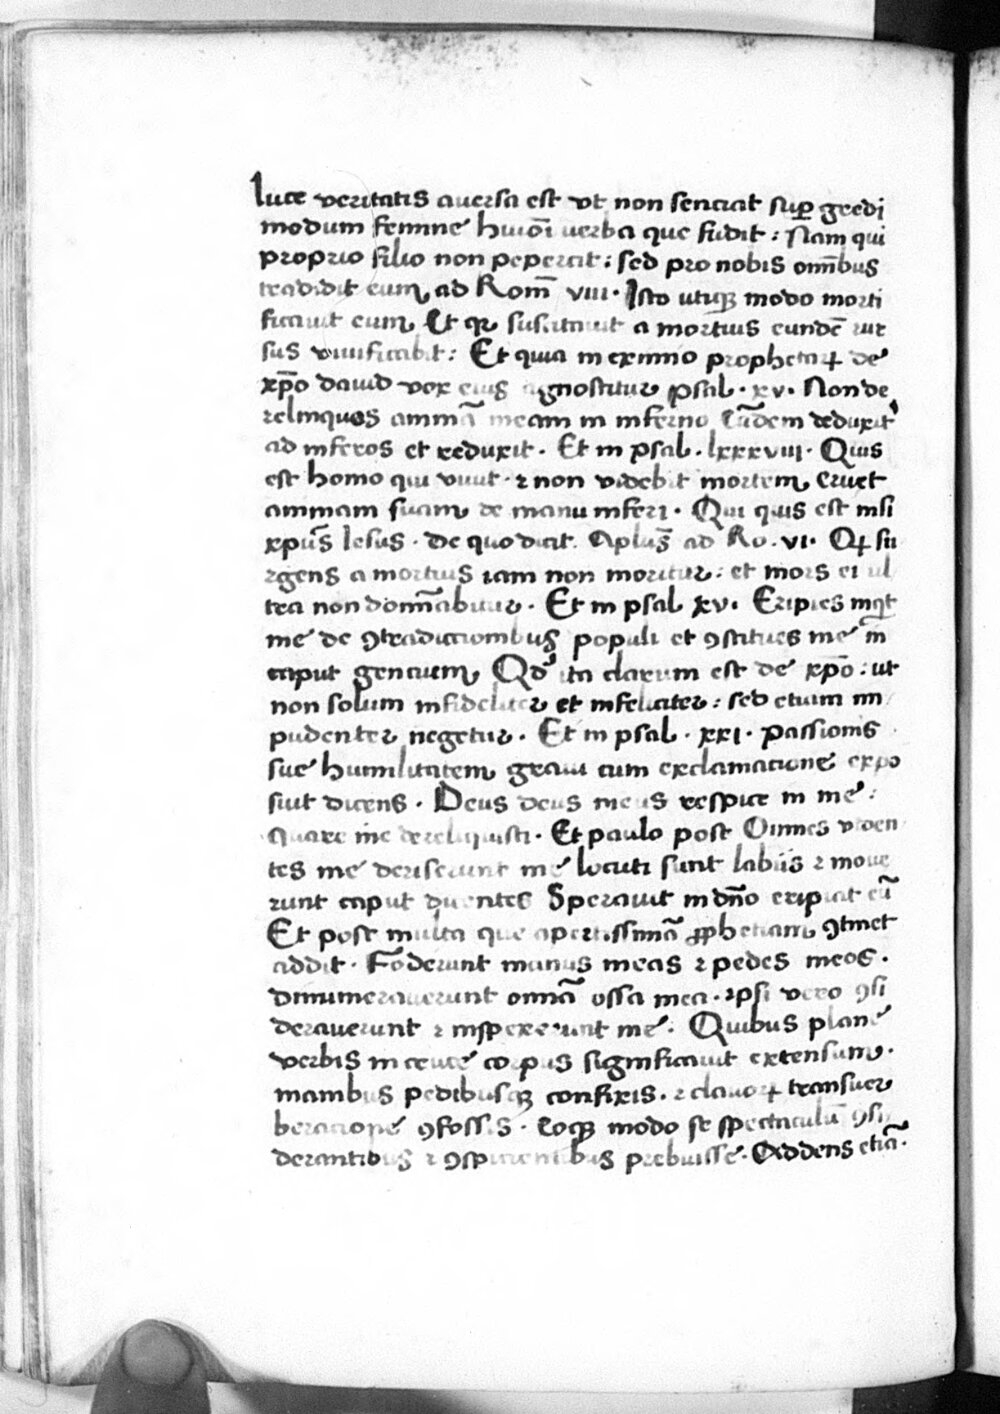 luce veritatis aversa est vt non senciat sup̄ gredi
modum femine huiō̄i verba que fudit : Nam qui
proprio filio non pepercit : sed pro nobis om̄ibus
tradidit eum, ad Rom̄ viii · Isto utiqꝫ modo morti
ficauit eum Et qꝛ suscitauit a mortuis eundē rur
sus viuificabit : Et quia in eximio prophetaꝝ de
xp̄o dauid vox eius agnoscitur psal · xv · Non de
relinques animā meam in inferno Tādem deduxit
ad inferos et reduxit · Et in psal · lxxxviii · Quis
est homo qui viuit · ⁊ non videbit mortem, eruet
animam suam de manu inferi · Qui quis est nisi
xpūs Iesus · De quo dicit Apl̄us ad Ro · vi · Qꝝ su
rgens a mortuis iam non moritur : et mors ei ul
tra non domīabitur · Et in psal xv · Eripies inqͥt
me de ꝯtradictionibus populi et ꝯstitues me in
caput gencium, Qđ ita clarum est de xp̄o : ut
non solum infideliter et infeliciter : sed etiam im
pudenter negetur · Et in psal · xxi · passionis
sue humilitatem graui cum exclamacione expo
siut dicens · Deus deus meus respice in me :
Quare me dereliquisti · Et paulo post Omnes viden
tes me deriserunt me locuti sunt labiis ⁊ moue
runt caput dicentes Sperauit in dn̄o eripiat eū
Et post multa que apertissimā ꝓphetiam ꝯtinet
addit · Foderunt manus meas ⁊ pedes meos ·
dinumerauerunt omnā ossa mea · ipsi vero ꝯsi
derauerunt ⁊ inspexerunt me · Quibus plane
verbis in cruce corpus significauit extensum ·
manibus pedibusqꝫ confixis · ⁊ clauoꝝ transuer
beracione ꝯfossis · Eoqꝫ modo se spectaculū ꝯsi
derantibus ⁊ ꝯspicientibus prebuisse · Addens etiā ·